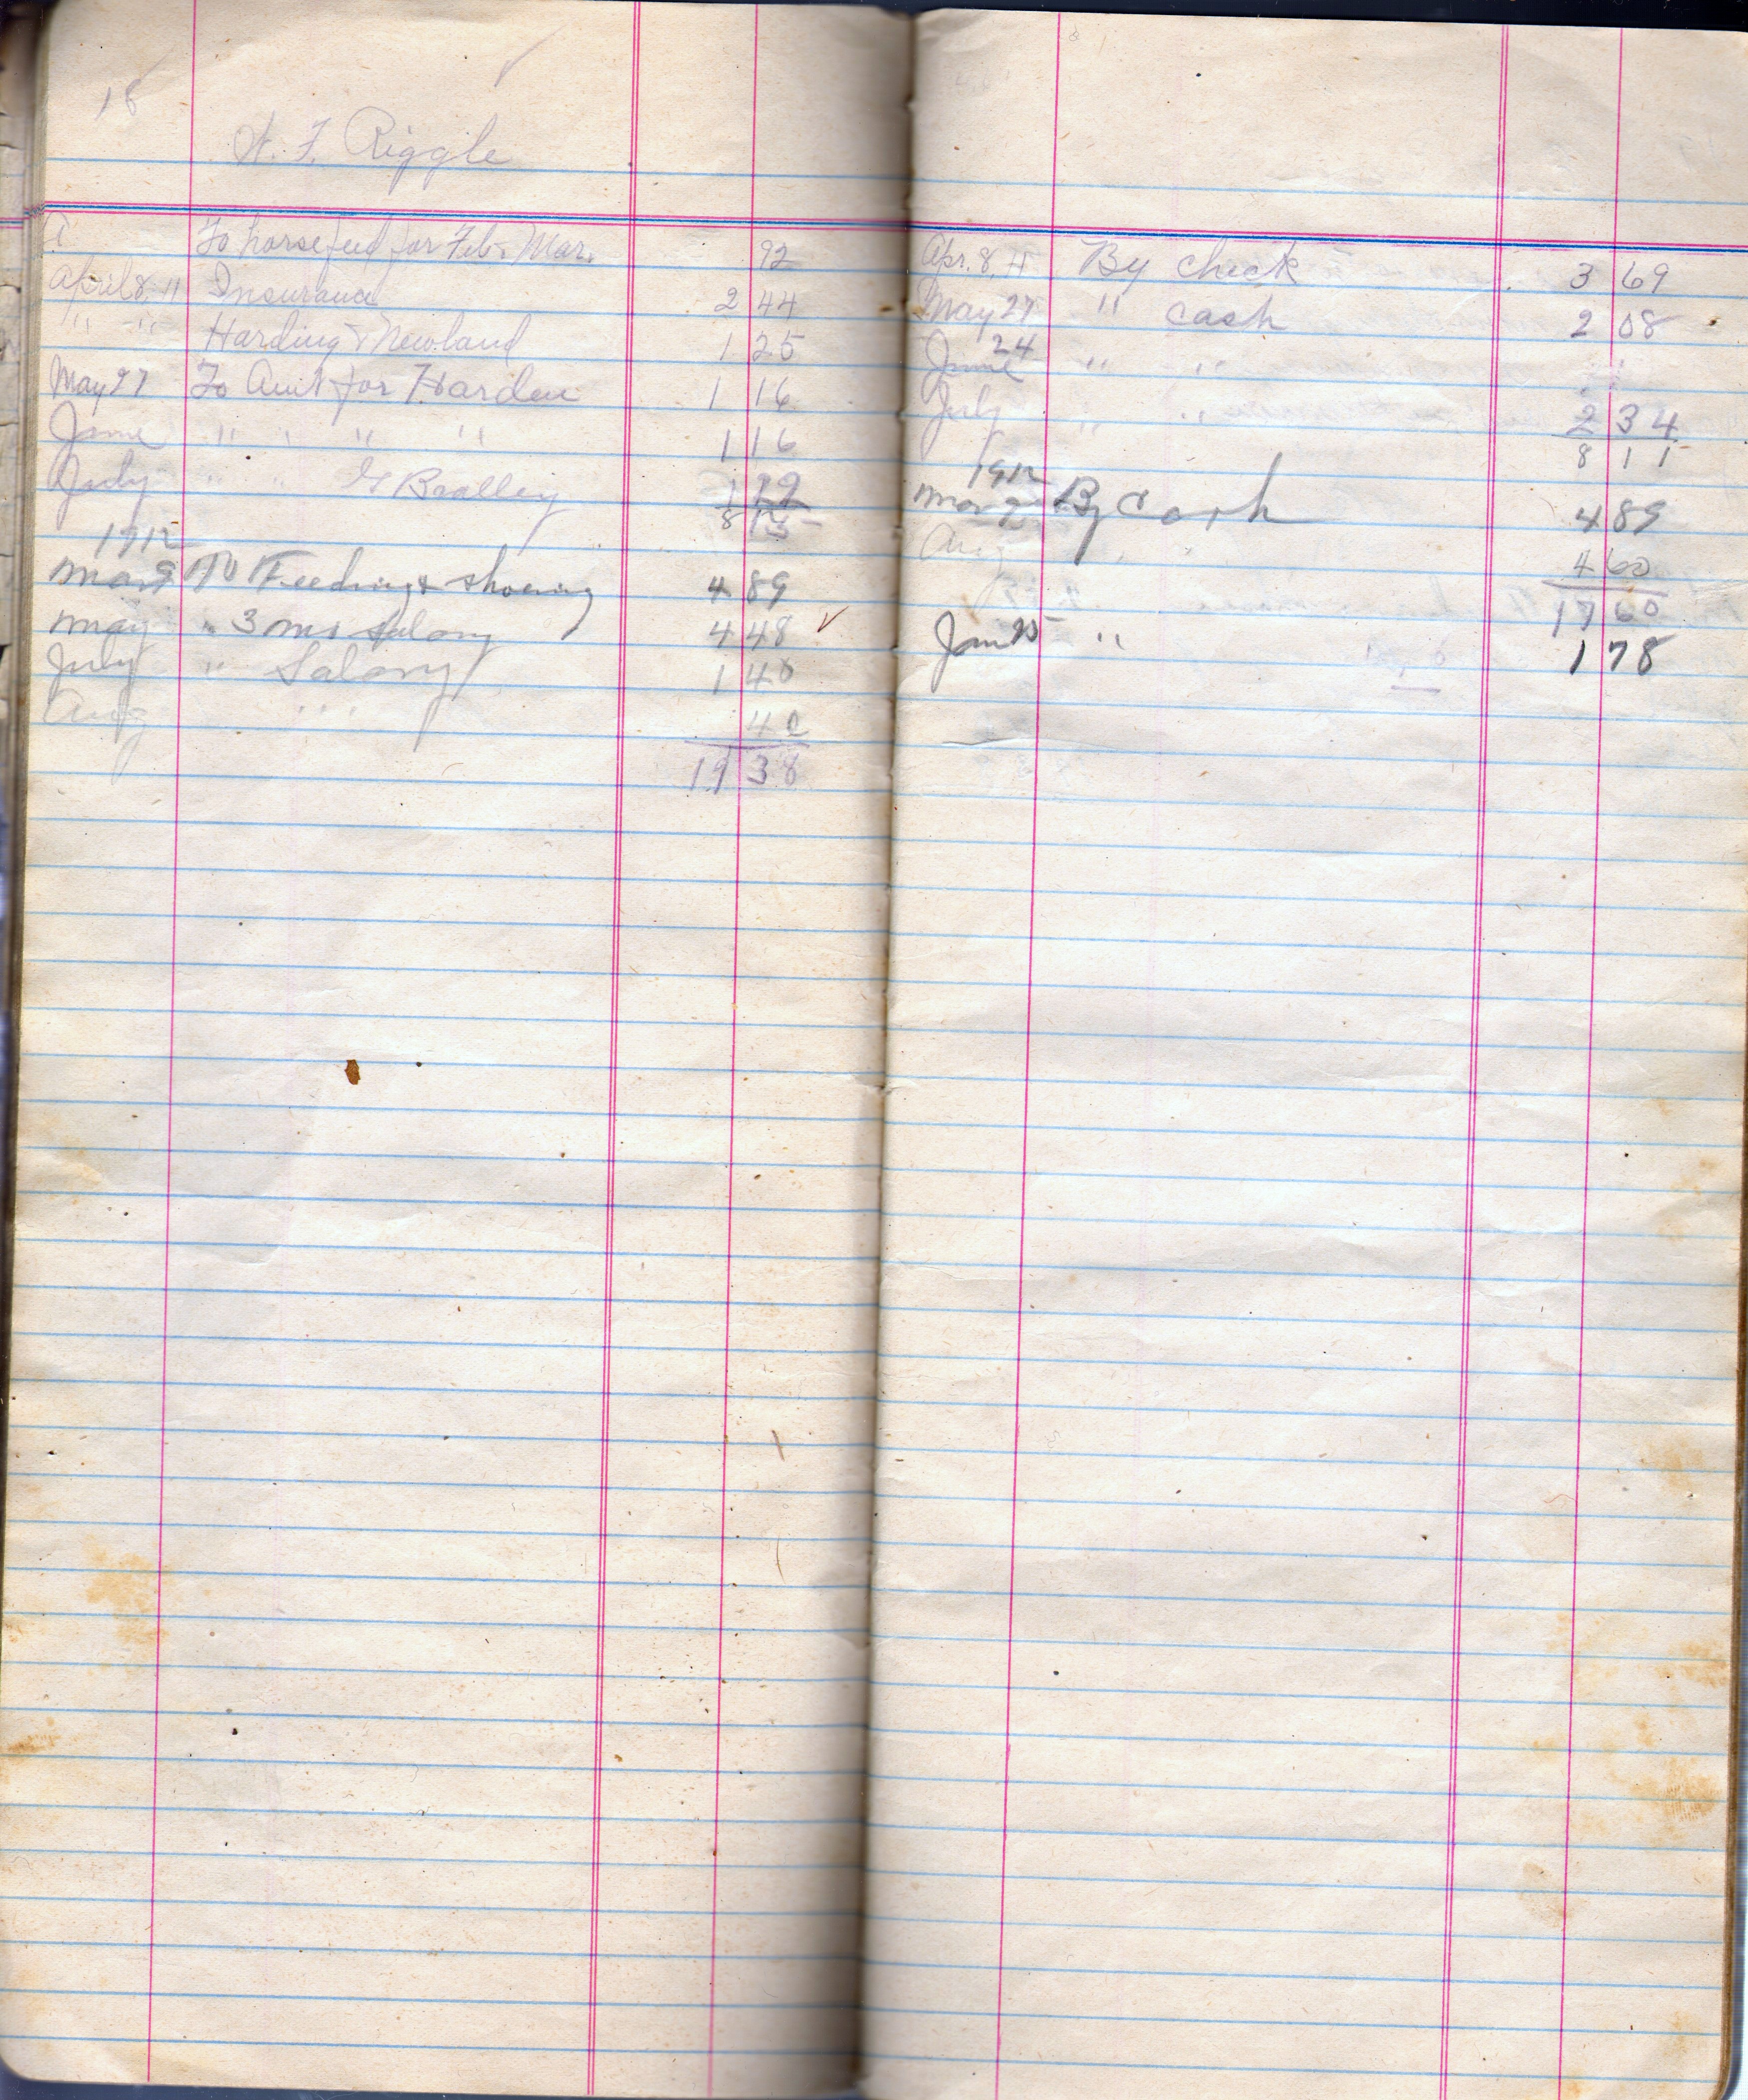 18
Riggle
To horsefeed for Feb. Mar. 92
April 8, 11 Insurance 2 44
" " Harding & Newland 1 25
May 27 To Amt for Harden 1 16
June " " " " 1 16
July " " Bradley 1
8 15
1912
Mar 9 To Feeding & Shoeing 4 89
May " 3 mos Salary 4 48 ✓
July " Salary 1 40
Aug " " 40
19 38
Apr. 8, 11 By check 3 69
May 27 " cash 2 08
June 24 " "
July " " 2 34
8 11
1912
Mar 9 By Cash 4 89
Aug " " 4 60
17 60
Jan 25 " 1 78